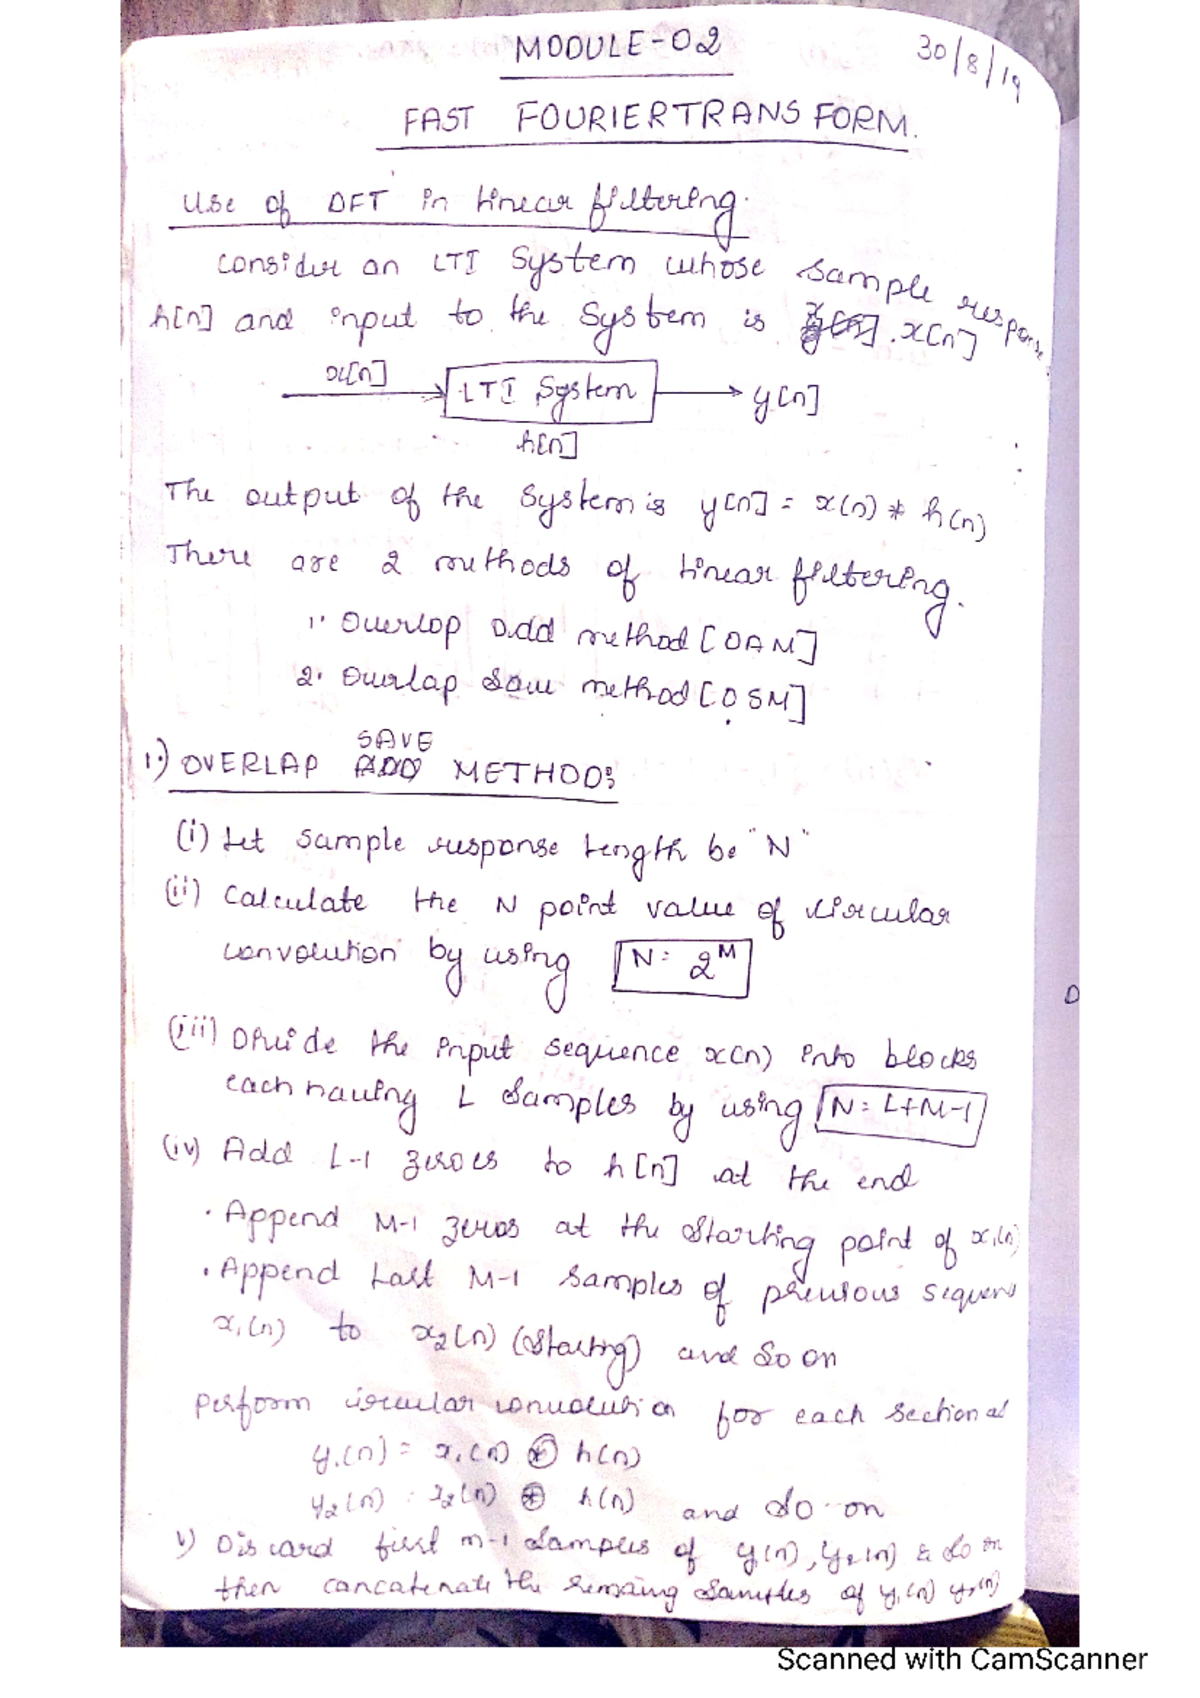 MODULE-02
30/8/19
FAST FOURIER TRANSFORM.
Use of DFT in linear filtering.
Consider an LTI System whose sample response
h[n] and input to the System is x[n]
x[n]
LTI System
y[n]
h[n]
The output of the System is y[n] = x(n) * h(n)
There are 2 methods of linear filtering.
1. Overlap add method [OAM]
2. Overlap Save method [OSM]
SAVE
1.) OVERLAP ADD METHOD:
(i) Let sample response length be "N"
(ii) Calculate the N point value of circular
convolution by using N = 2^M
(iii) Divide the input sequence x(n) into blocks
each having L Samples by using N = L+M-1
(iv) Add L-1 zeroes to h[n] at the end
• Append M-1 zeros at the starting point of x1(n)
• Append Last M-1 samples of previous sequence
x1(n) to x2(n) (starting) and so on
perform circular convolution for each sectional
y1(n) = x1(n) ⊛ h(n)
y2(n) = x2(n) ⊛ h(n) and so on
v) Discard first m-1 samples of y1(n), y2(n) & so on
then concatenate the remaing samples of y1(n) y2(n)
Scanned with CamScanner